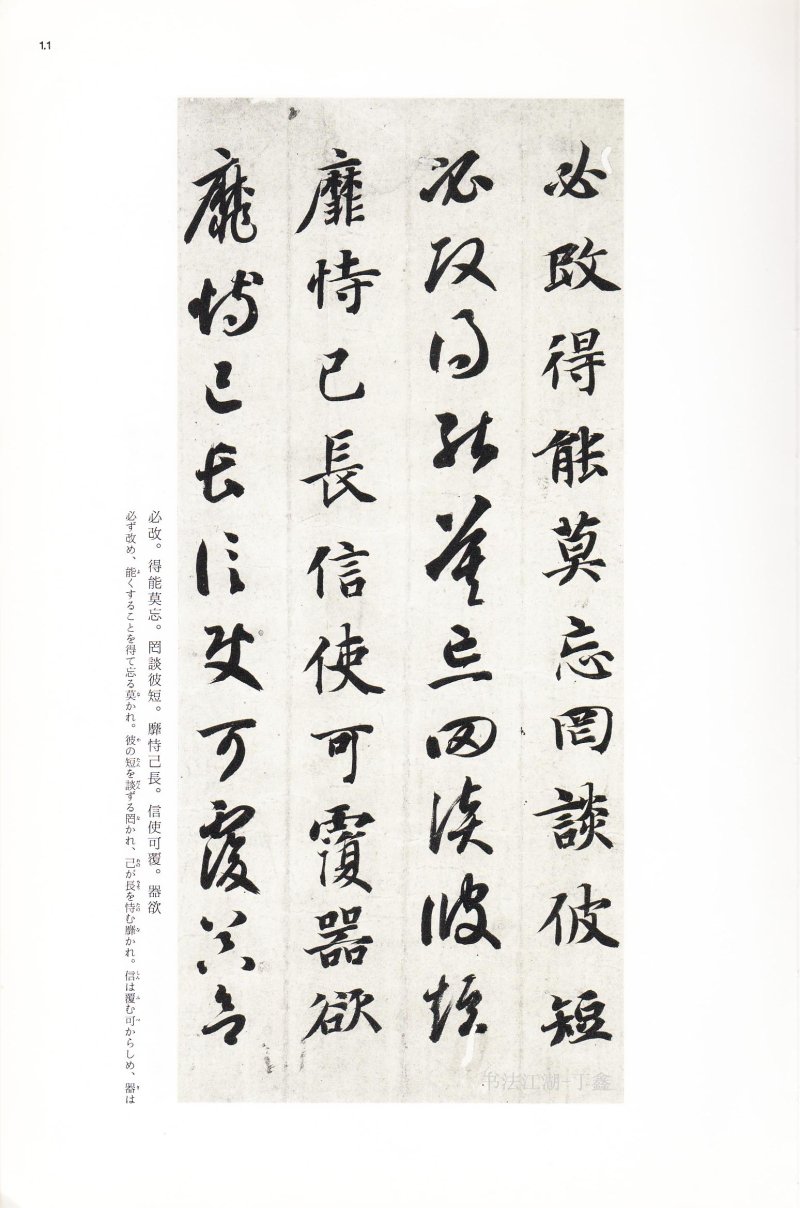 1.1
必改得能莫忘罔談彼短
必改得能莫忘罔談彼短
靡恃己長信使可覆器欲
靡恃己長信使可覆器欲
必改。得能莫忘。罔談彼短。靡恃己長。信使可覆。器欲
必ず改め、能くすることを得て忘る莫かれ。彼の短を談ずる罔かれ、己が長を恃む靡かれ。信は覆む可からしめ、器は
书法江湖-丁鑫